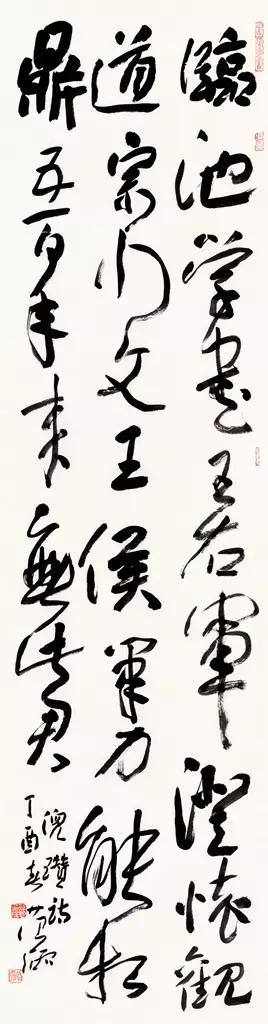 臨池学書王右軍澄懷觀
道宗少文王侯筆力能扛
鼎五百年来無此君
倪瓚詩
丁酉春